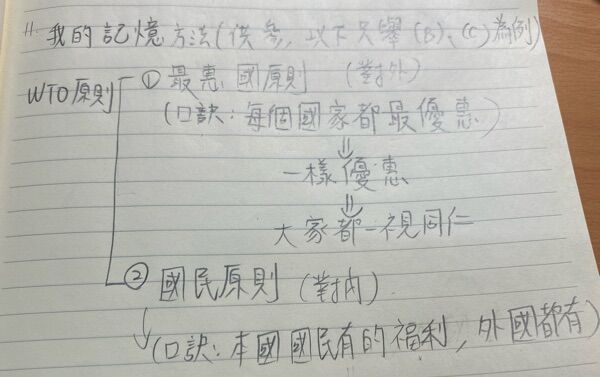 11. 我的記憶方法(供參, 以下只舉(B)、(C)為例)
WTO原則 ① 最惠國原則 (對外)
(口訣: 每個國家都最優惠)
⇓
一樣優惠
⇓
大家都一視同仁
② 國民原則 (對內)
↓
(口訣: 本國國民有的福利, 外國都有)